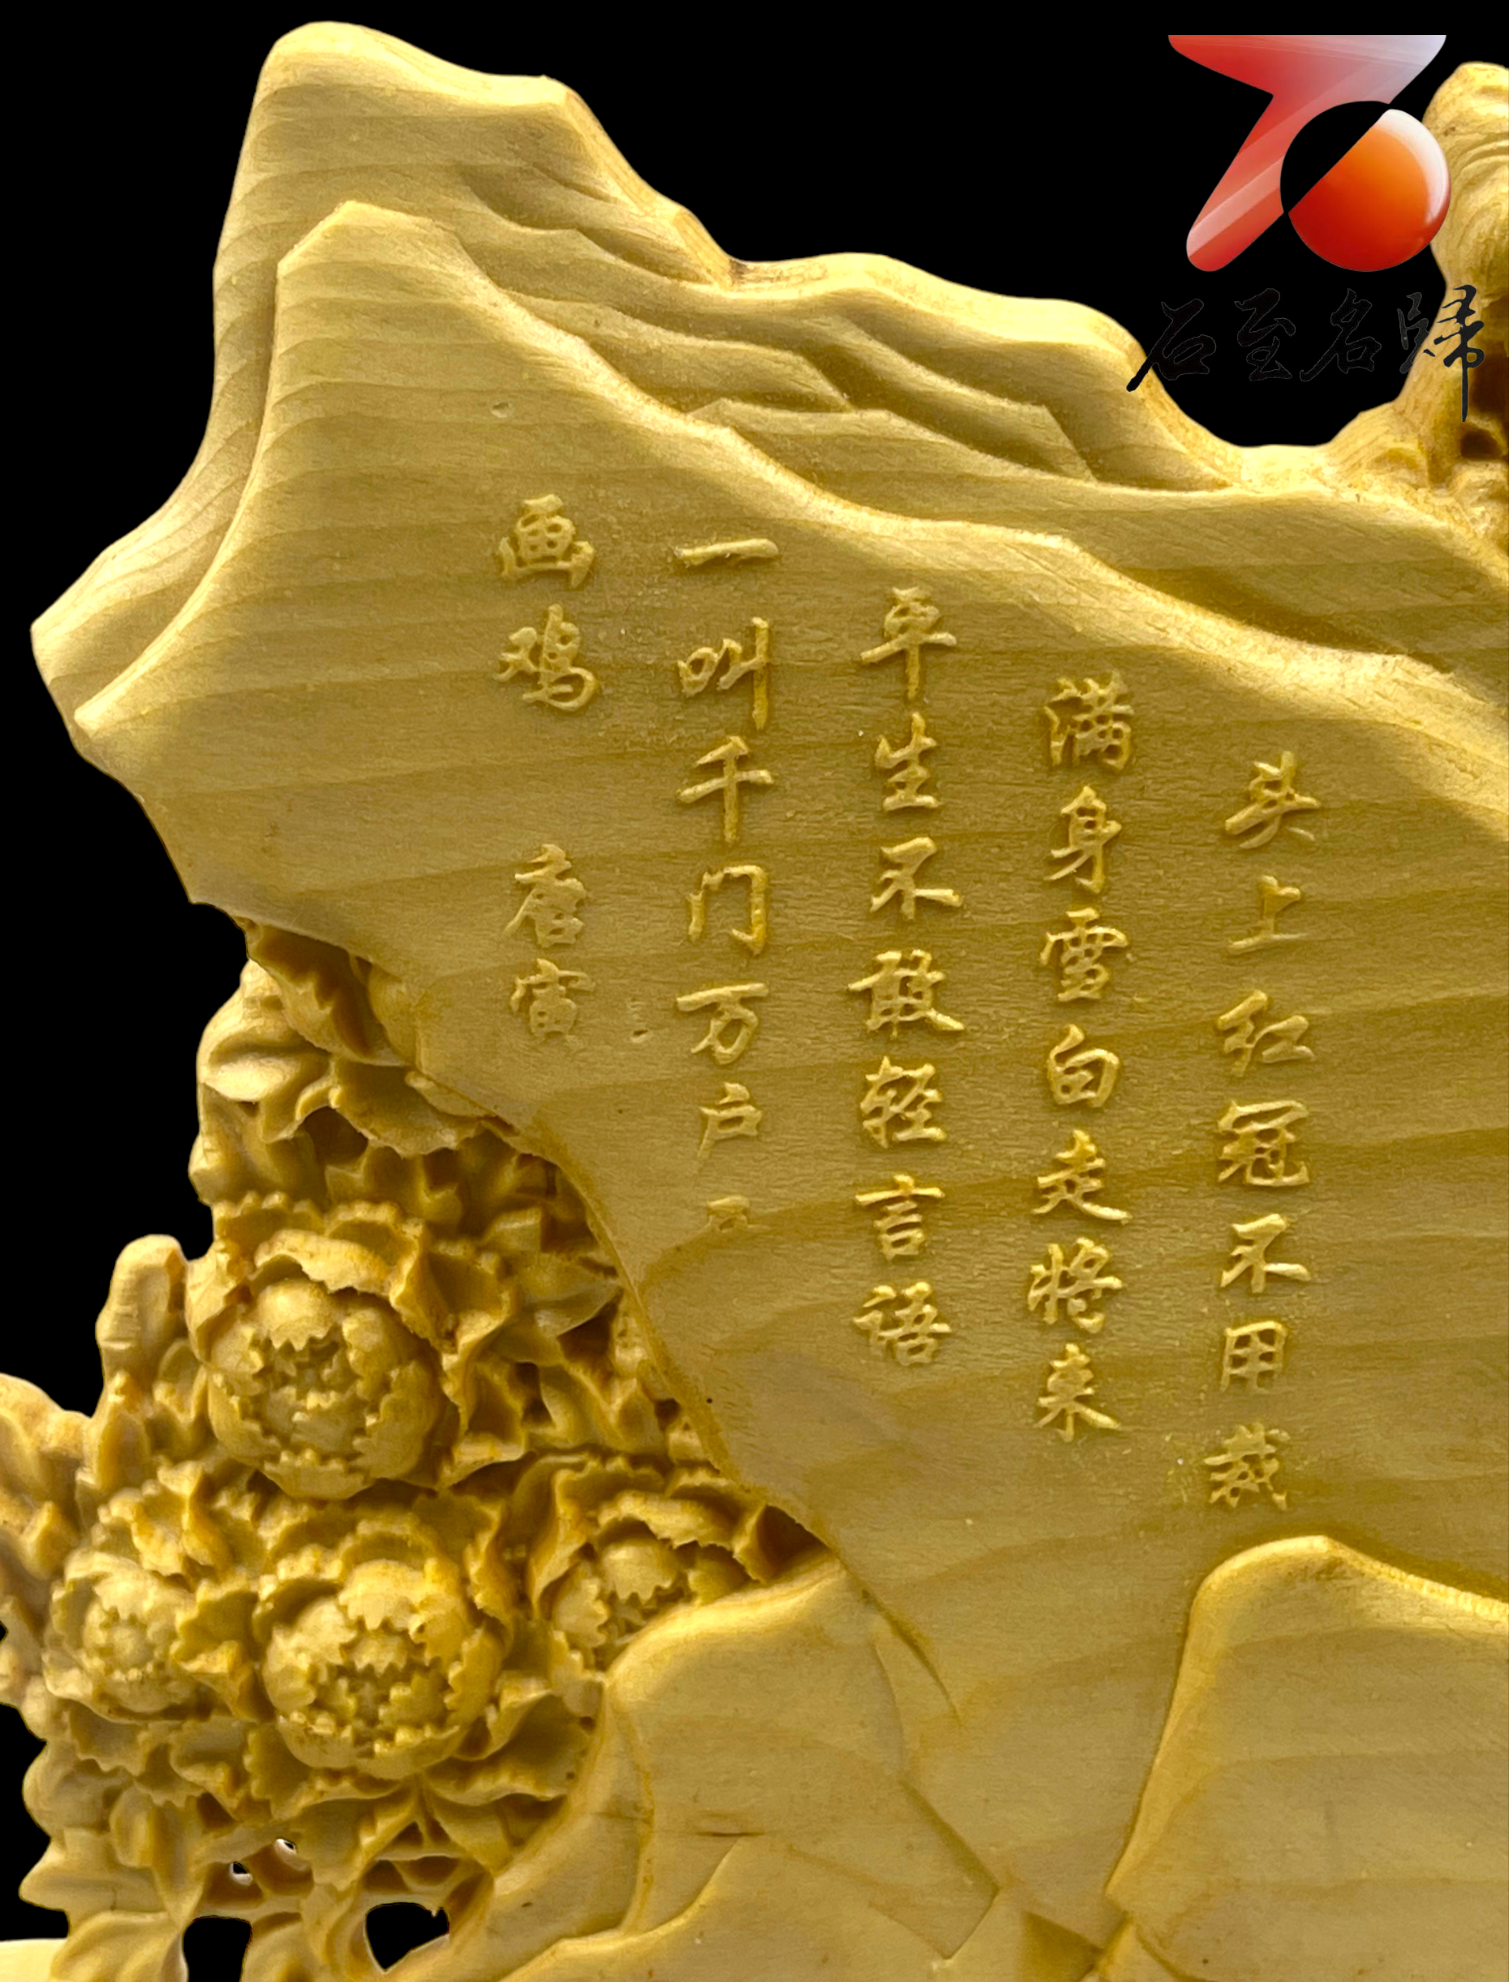 石至名歸
头上红冠不用裁
满身雪白走将来
平生不敢轻言语
一叫千门万户
画鸡 唐寅